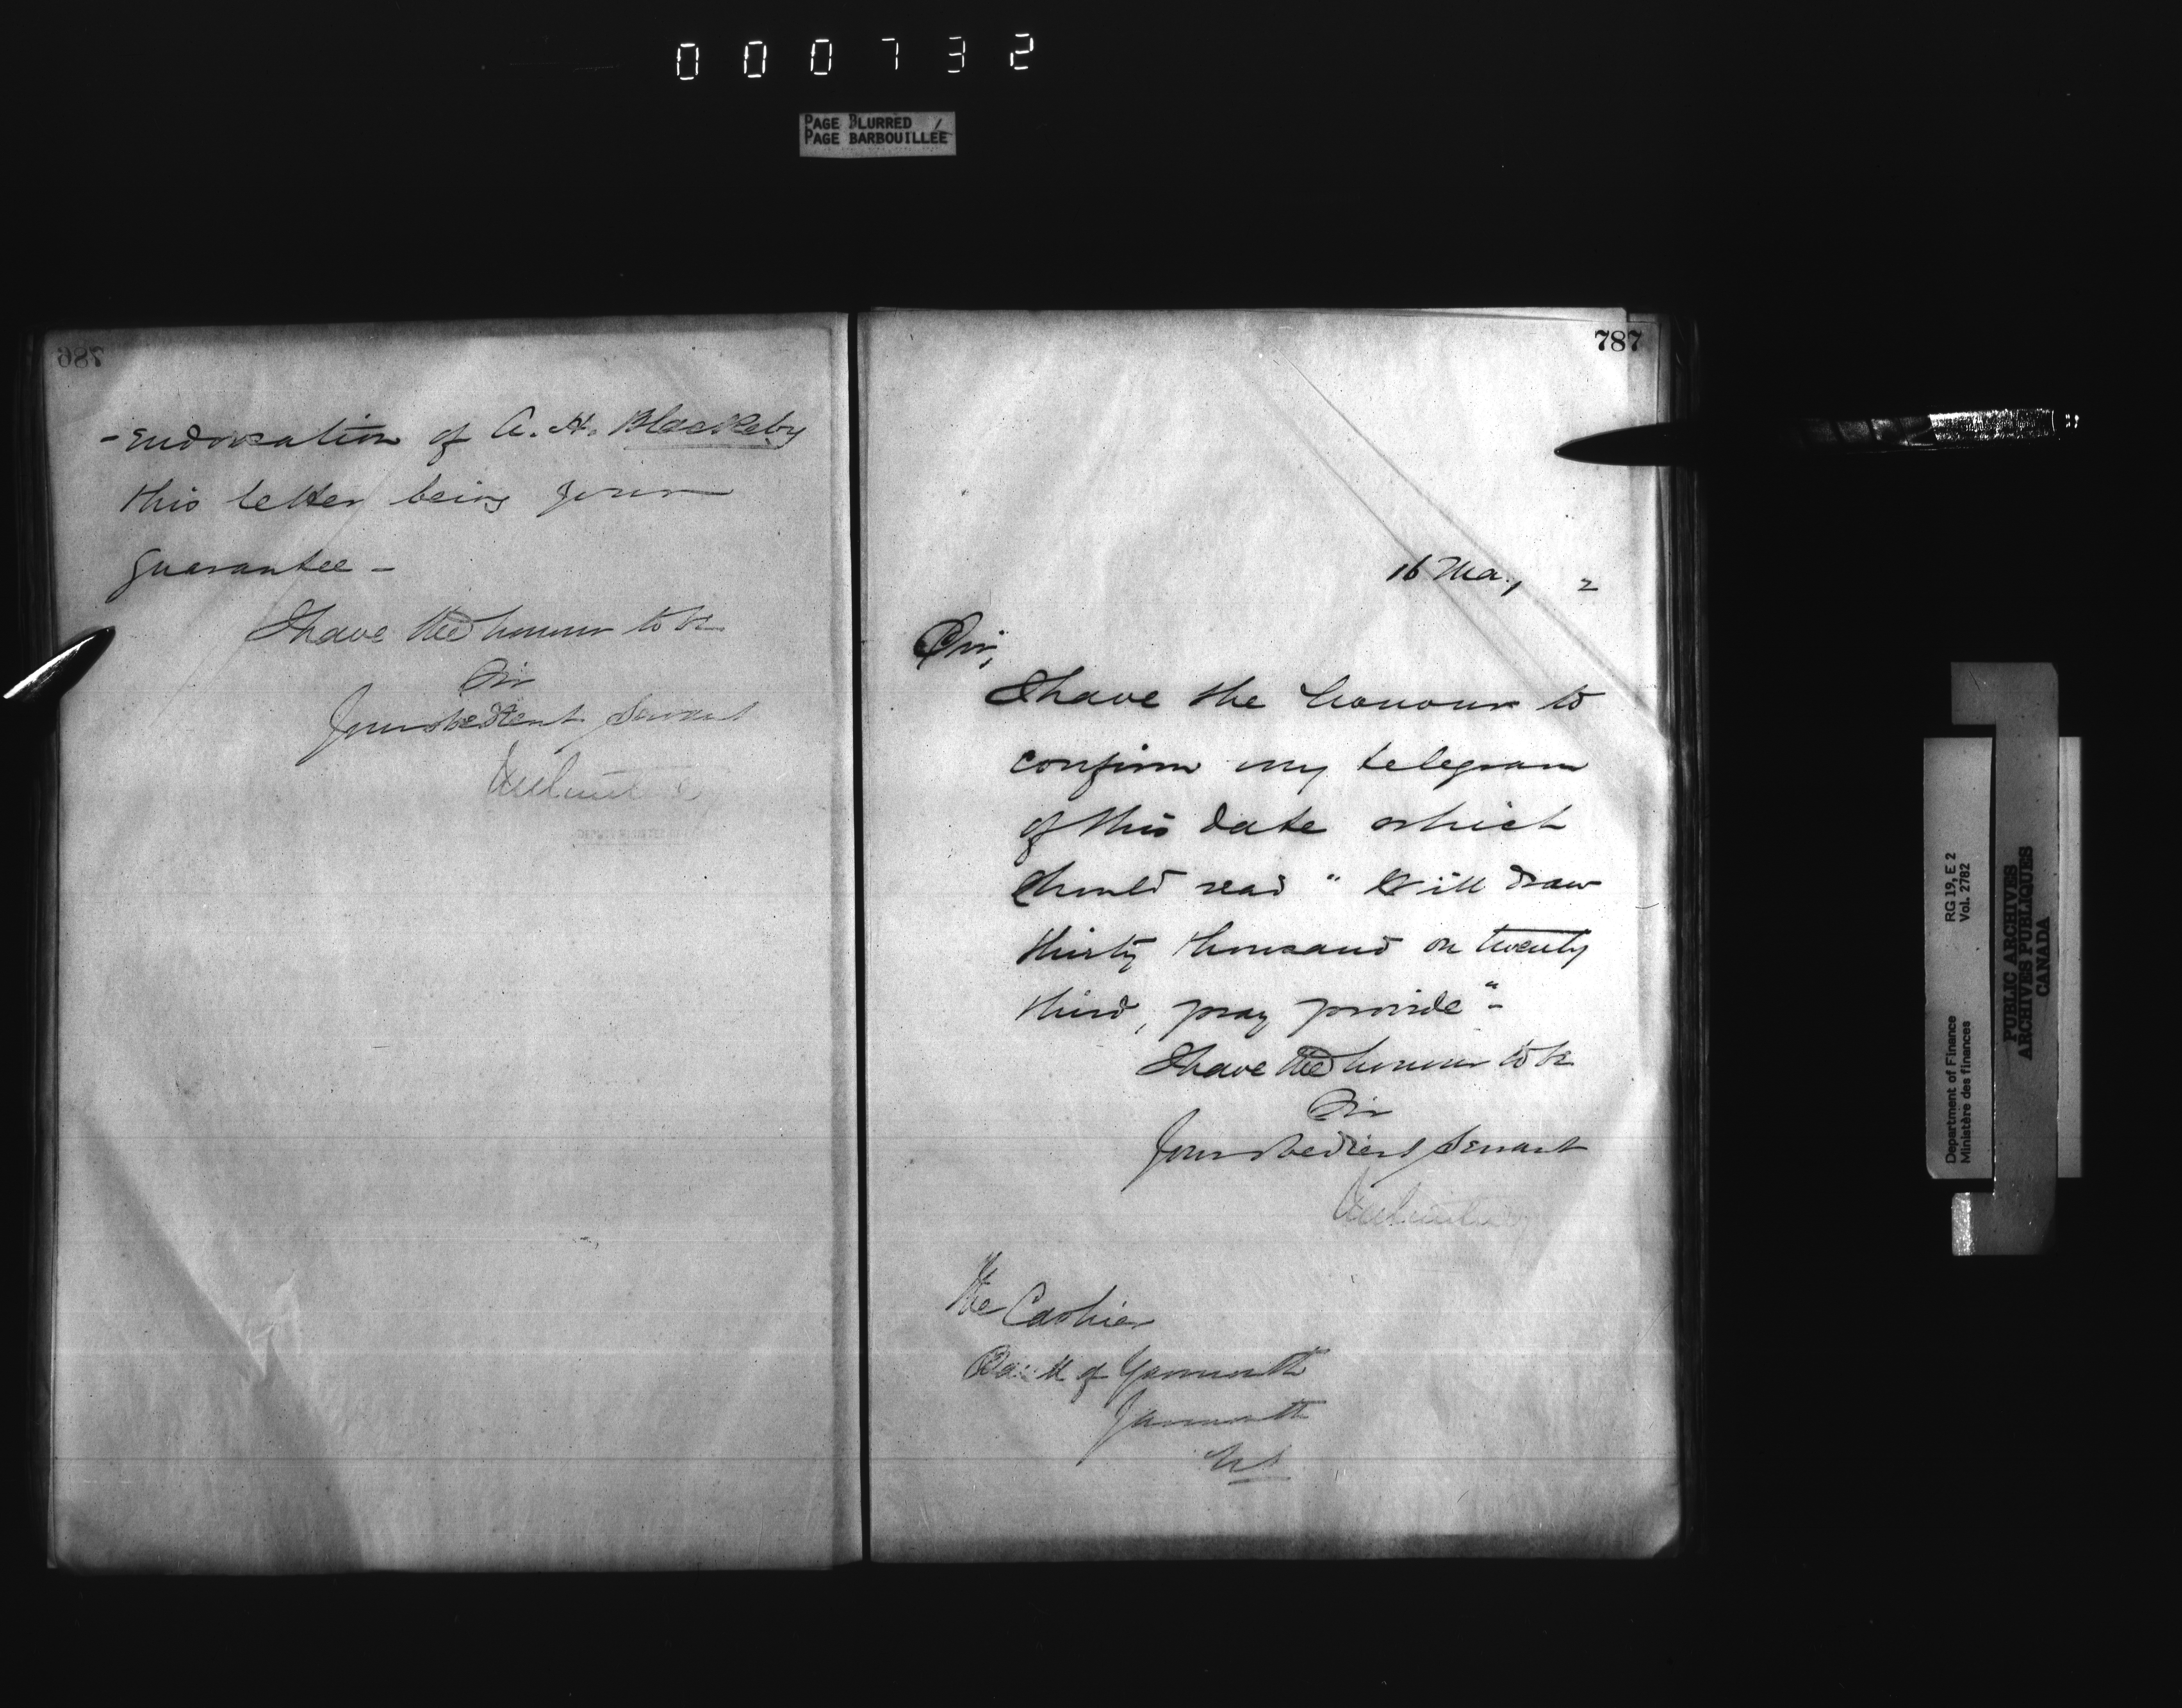 000732
PAGE BLURRED
PAGE BARBOUILLÉE
786
- endorsation of A. H. Blackeby
this letter being your
guarantee -
I have the honour to be
Sir
Your obedient Servant
DEPUTY MINISTER OF
787
16 May, 2
Sir,
I have the honour to
confirm my telegram
of this date which
should read " Will draw
thirty thousand on twenty
third, pray provide " -
I have the honour to be
Sir
Your obedient Servant
The Cashier
Bank of Yarmouth
Yarmouth
NS
Department of Finance
Ministère des finances
RG 19, E 2
Vol. 2782
PUBLIC ARCHIVES
ARCHIVES PUBLIQUES
CANADA